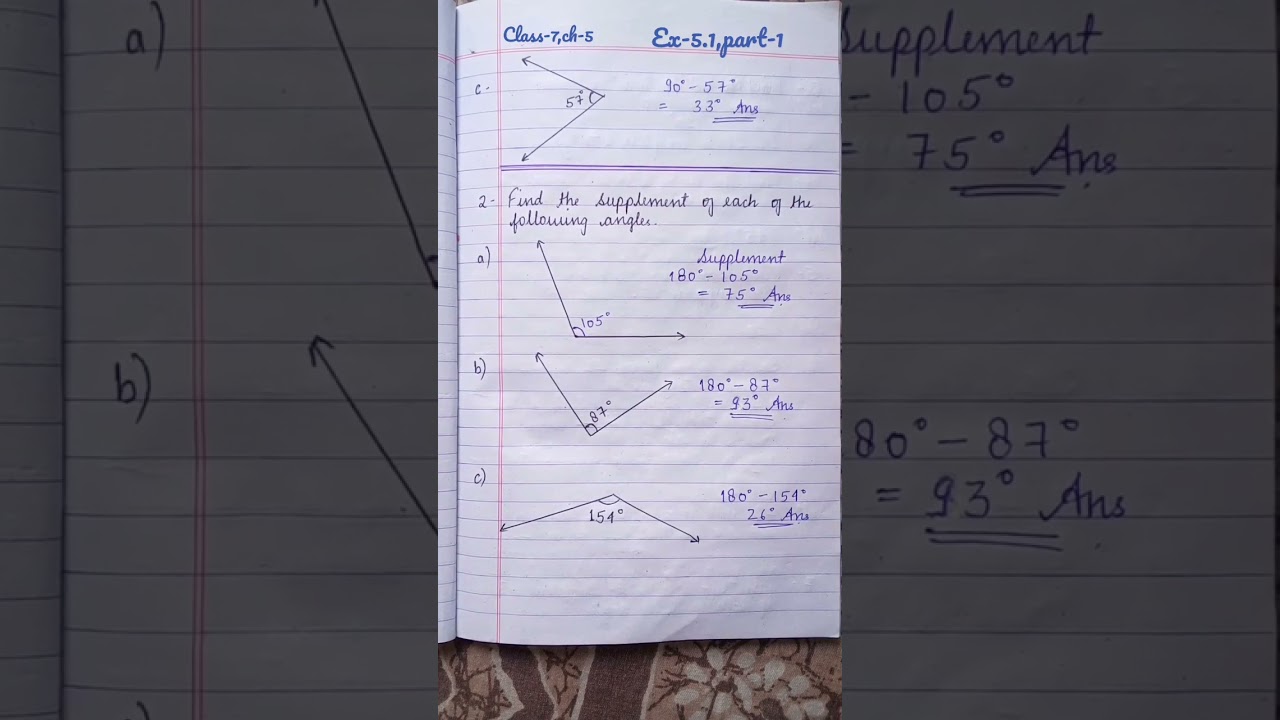 Class-7,ch-5 Ex-5.1,part-1
c- 57° 90° - 57°
= 33° Ans
2- Find the supplement of each of the
following angles.
a) Supplement
180° - 105°
= 75° Ans
105°
b) 180° - 87°
= 93° Ans
87°
c) 180° - 154°
154° 26° Ans
a) Supplement
- 105°
= 75° Ans
b) 80° - 87°
= 93° Ans